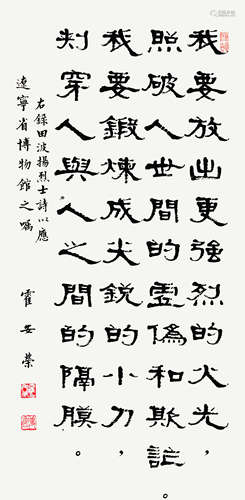 我要放出更強烈的火光，
照破人世間的虛偽和欺詐。
我要鍛煉成尖銳的小刀，
刺穿人與人之間的隔膜。
右錄田波揚烈士詩以應
遼寧省博物館之囑
霍安榮